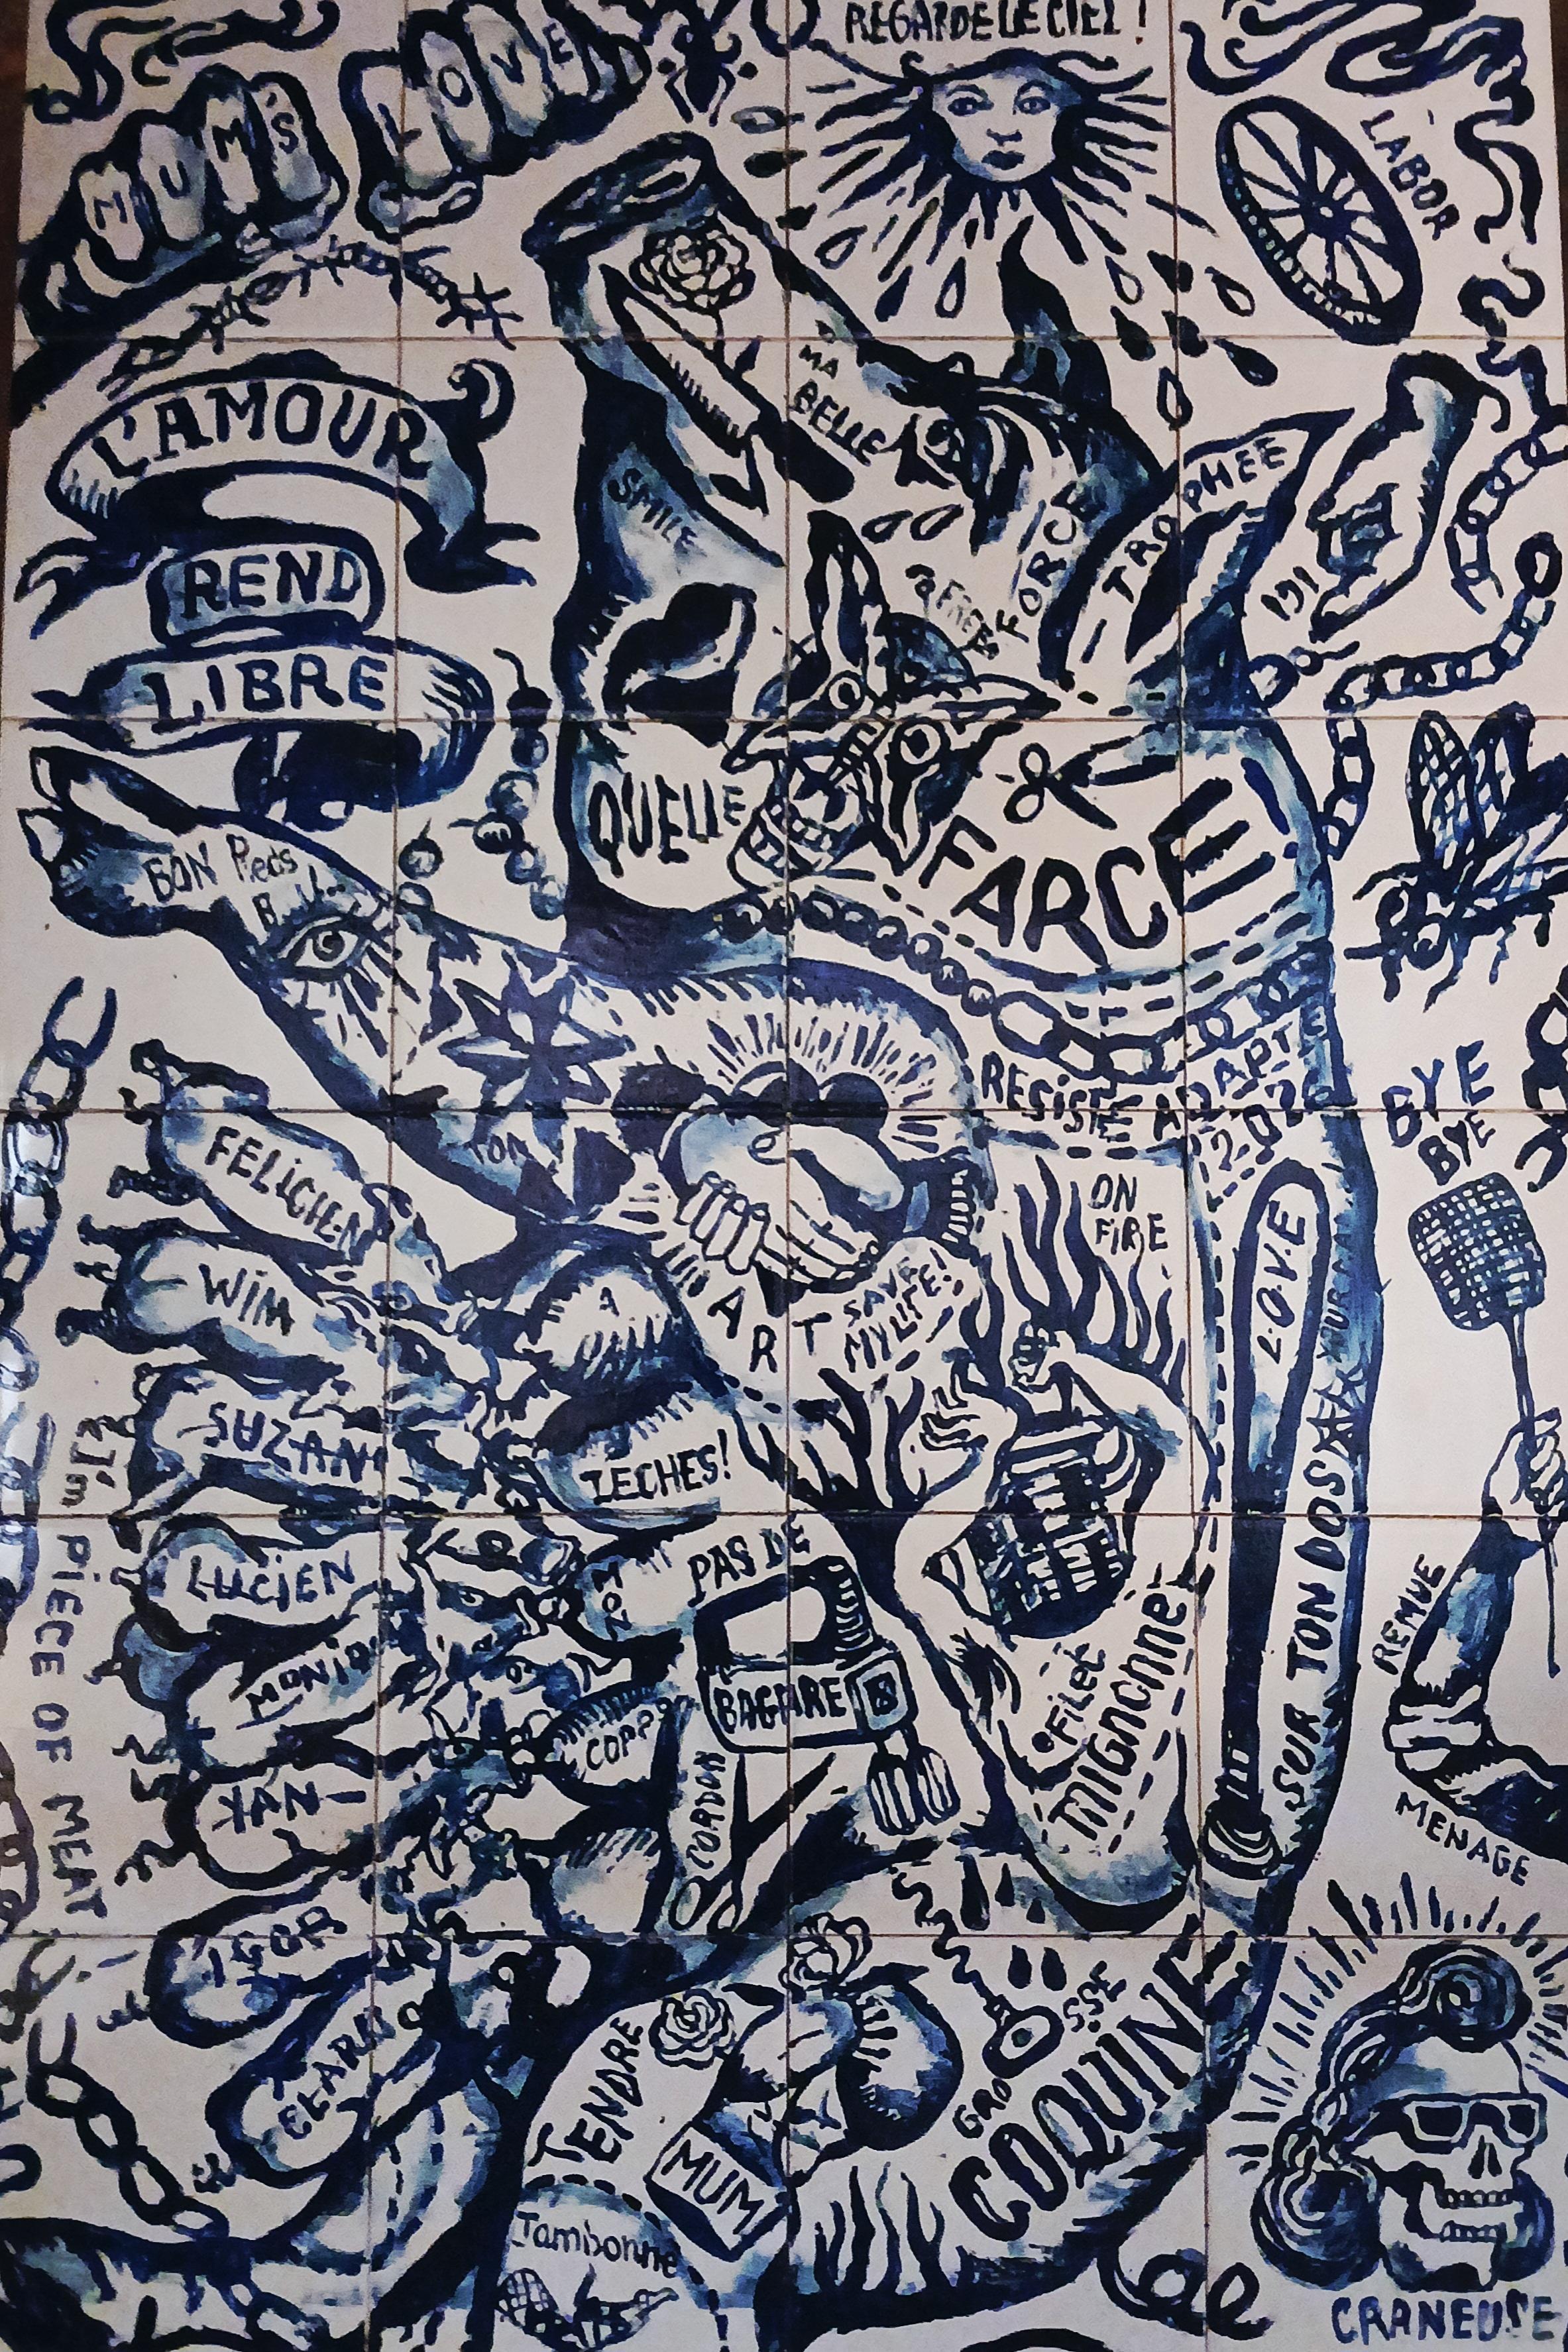 REGARDE LE CIEL !
MUM'S
LOVE
LABOR
L'AMOUR
REND
LIBRE
MA
BELLE
SMILE
FORCE
TROPHEE
191
QUELLE
FARCE
BON Pieds
RESISTE
ADAPT
BYE
BYE
TON
ON
FIRE
FELICIEN
WIM
SUZAN
LUCIEN
MONIQ
YAN
IGOR
A
ART
SAVE
MY LIFE!
LECHES!
L.O.V.E
SUR TON DOS
I'm PiECE OF MEAT
PAS DE
BAGARRE
COPPS
CORDON
Filet
Mignonne
REMUE
MENAGE
TENDRE
MUM
GRO
SSE
COQUINE
Jambonne
CRANEUSE